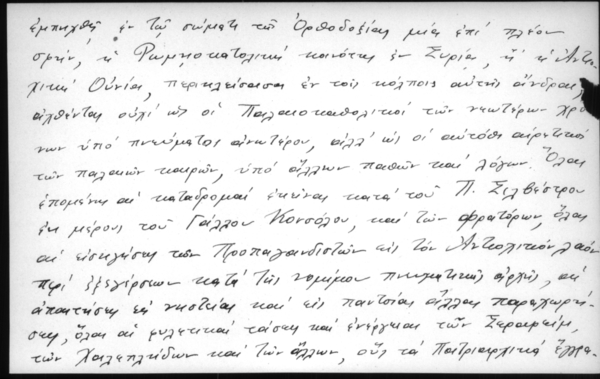 ἐμπηχθῇ ἐν τῷ σώματι τῆς Ὀρθοδοξίας μία ἐπὶ πλέον
ἡ Ρωμηοκαθολικὴ κοινότης ἐν Συρίᾳ, ἤτοι ἡ Ἀντιο-
χικὴ Οὐνία, περικλείσασα ἐν τοῖς κόλποις αὐτῆς ἄνδρας,
ἀχθέντας οὐχὶ ὡς οἱ Παλαιοκαθολικοὶ τῶν νεωτέρων χρό
νων ὑπὸ πνεύματος ἀνωτέρου, ἀλλ' ὡς οἱ αὐτόθι αἱρετικοὶ
τῶν παλαιῶν καιρῶν, ὑπὸ ἄλλων παθῶν καὶ λόγων. Ὅλαι
ἑπομένως αἱ καταδρομαὶ ἐκεῖναι κατὰ τοῦ Π. Σελβέστρου
ἐκ μέρους τοῦ Γάλλου Κονσόλου, καὶ τῶν φρατόρων, ὅλαι
αἱ εἰσηγήσεις τῶν Προπαγανδιστῶν εἰς τὸν Ἀντιοχικὸν λαὸν
περὶ ἐξεγέρσεων κατὰ τῆς νομίμου πνευματικῆς ἀρχῆς, αἱ
ἀπαιτήσεις εἰς νηστείας καὶ εἰς παντοίας ἄλλας παραχωρή-
σεις, ὅλαι αἱ φυλετικαὶ τάσεις καὶ ἐνέργειαι τῶν Σεραφείμ,
τῶν Χαλεπλήδων καὶ τῶν ἄλλων, οὓς τὰ Πατριαρχικὰ ἔγγρα-